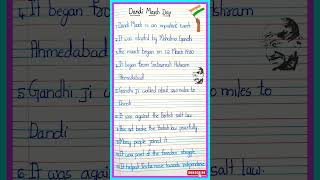 Dandi March Day
1. Dandi March is an important event.
2. It was started by Mahatma Gandhi
3. The march began on 12 March 1930
4. It began from Sabarmati Ashram
Ahmedabad
5. Gandhi ji walked about 240 miles to
Dandi
6. It was against the British salt law.
7. This act broke the British law peacefully
8. Many people joined it.
9. It was part of the freedom struggle.
10. It helped India move towards independence.
SUBSCRIBE
4. It began
Ashram
Ahmedabad
5. Gandhi
miles to
Dandi
6. It was
salt law.